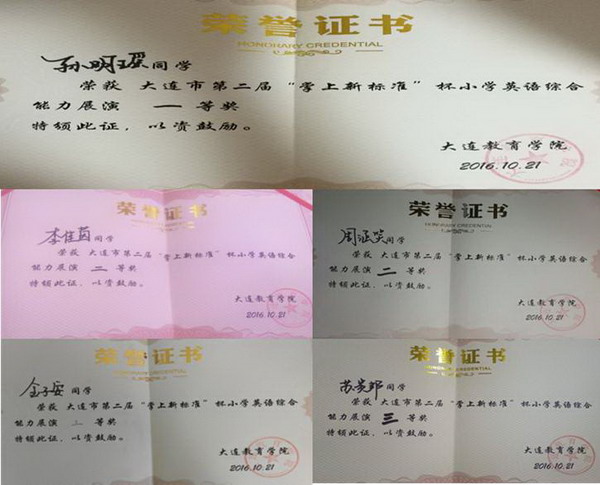 荣誉证书
HONORARY CREDENTIAL
孙明瑶同学
荣获 大连市第二届“掌上新标准”杯小学英语综合
能力展演 一 等奖
特颁此证,以资鼓励。
大连教育学院
2016.10.21
荣誉证书
李佳茵同学
荣获 大连市第二届“掌上新标准”杯小学英语综合
能力展演 二 等奖
特颁此证,以资鼓励。
大连教育学院
2016.10.21
荣誉证书
HONORARY CREDENTIAL
同学
荣获 大连市第二届“掌上新标准”杯小学英语综合
能力展演 二 等奖
特颁此证,以资鼓励。
大连教育学院
2016.10.21
荣誉证书
同学
荣获 大连市第二届“掌上新标准”杯小学英语综合
能力展演 等奖
特颁此证,以资鼓励。
大连教育学院
2016.10.21
荣誉证书
同学
荣获 大连市第二届“掌上新标准”杯小学英语综合
能力展演 三 等奖
特颁此证,以资鼓励。
大连教育学院
2016.10.21